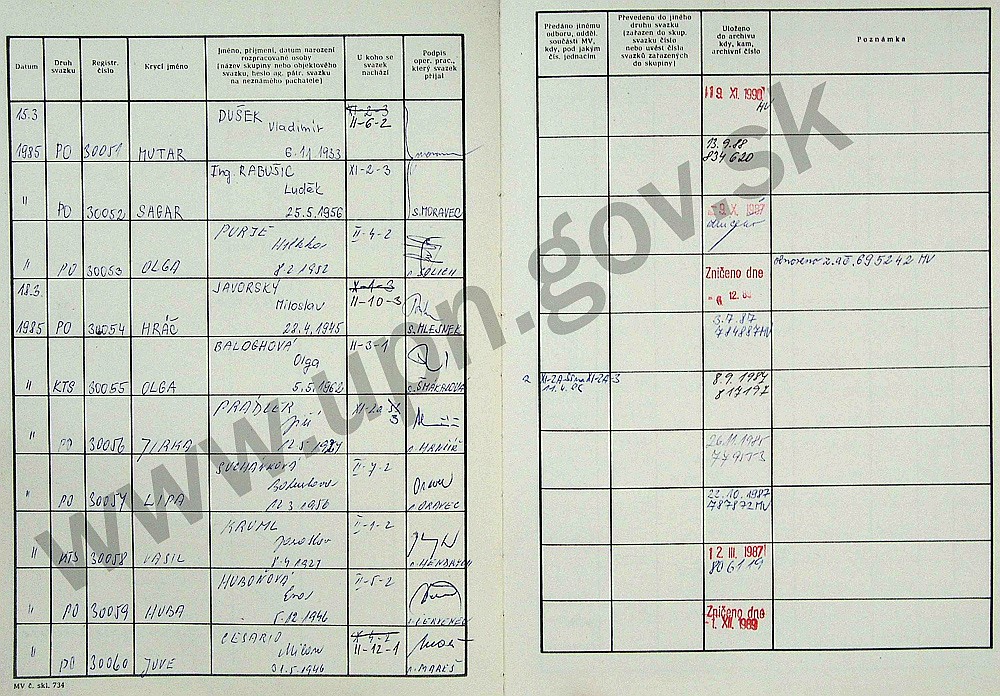 Datum
Druh svazku
Registr. číslo
Krycí jméno
Jméno, příjmení, datum narození
rozpracované osoby
[název skupiny nebo objektového
svazku, heslo ag. pátr. svazku
na neznámého pachatele]
U koho se
svazek
nachází
Podpis
oper. prac.,
který svazek
přijal
15.3
1985 PO 30051 MUTAR
DUŠEK
Vladimír
6.11.1933
XI-2-3
II-6-2
" PO 30052 SAGAR
Ing. RABUŠIC
Luděk
25.5.1956
XI-2-3
S.MORAVEC
" PO 30053 OLGA
8.2.1952
II-4-2
18.3.
1985 PO 30054 HRÁČ
JAVORSKÝ
Miloslav
28.4.1945
X-1-3
II-10-3
S.MLEJNEK
" KTS 30055 OLGA
BALOGHOVÁ
Olga
5.5.1962
II-3-1
" PO 30056 JIRKA
PRADLER
Jiří
XI-2a
3
" PO 30057 LIPA
SUCHÁNKOVÁ
12.3.1956
II-7-2
ORAVEC
" KTS 30058 VASIL
KRUML
Jaroslav
II-1-2
" PO 30059 HUBA
HUBOŇOVÁ
5.12.1946
II-5-2
" PO 30060 JUVE
CESARIO
31.5.1946
X-4-2
II-12-1
MAREŠ
MV č. skl. 734
Předáno jinému
odboru, odděl.
součásti MV,
kdy, pod jakým
čís. jednacím
Převedeno do jiného
druhu svazku
(zařazen do skup.
svazku číslo
nebo uvést čísla
svazků zařazených
do skupiny]
Uloženo
do archivu
kdy, kam,
archivní číslo
Poznámka
19. XI. 1990
MV
13.9.88
834620
-9. X. 1987
Zničeno dne
12.
obnoveno z 695242 MV
3.7.87
784887MV
2
11.4.86
8.9.1987
817197
26.11.1985
22.10.1987
787872MV
12. III. 1987
806119
Zničeno dne
-1. XII. 1989
www.upn.gov.sk